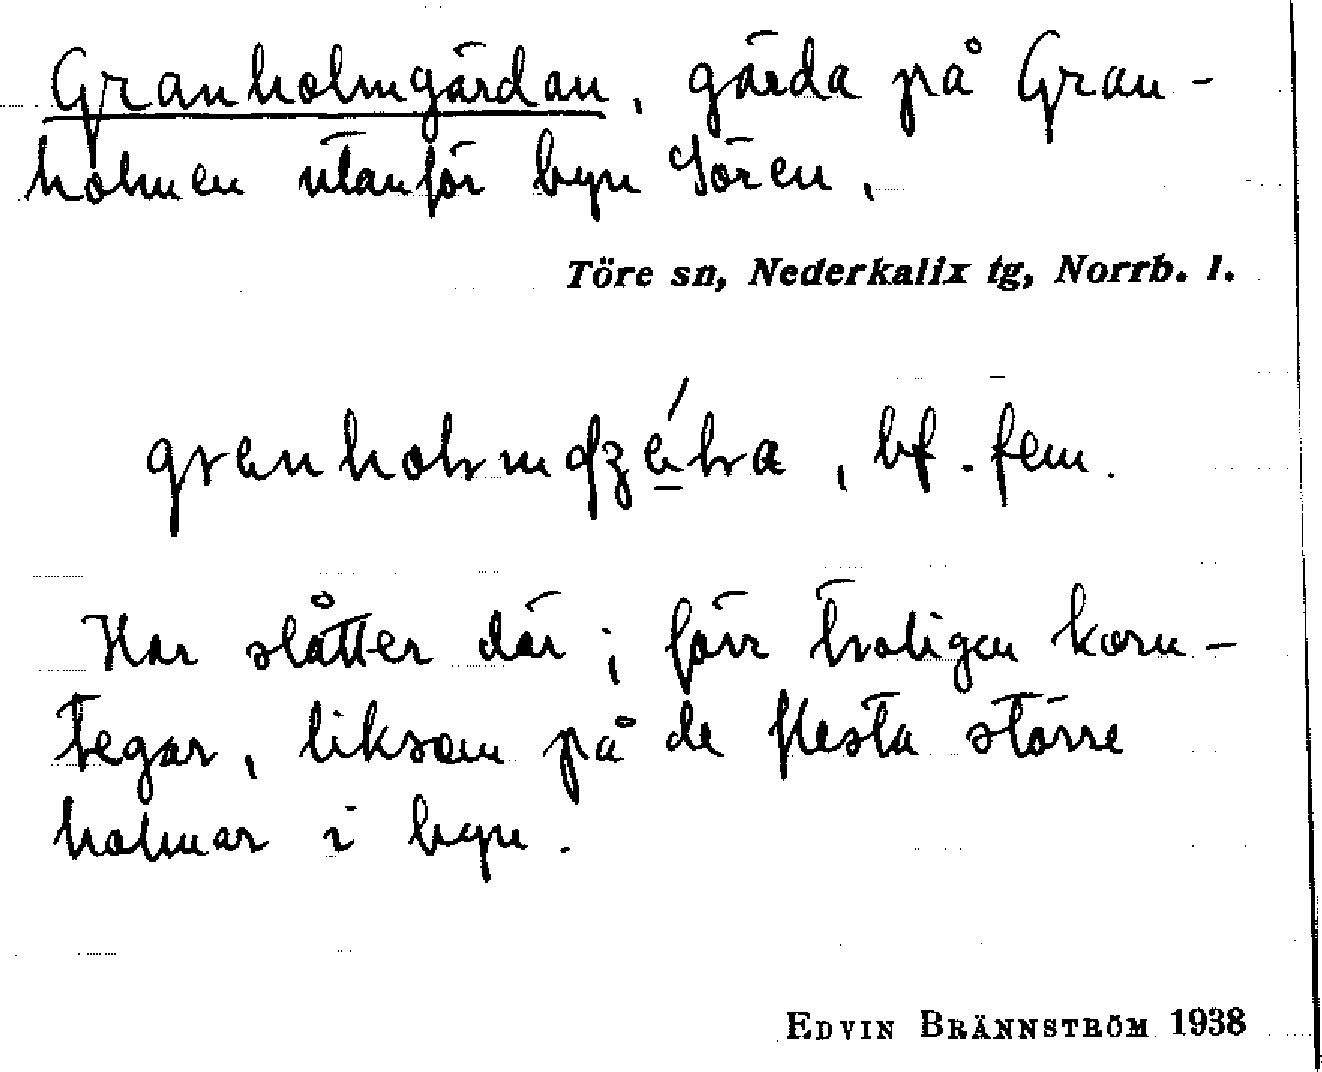 Granholmgärdan, gärda på Gran-
holmen utanför byn Sören,
Töre sn, Nederkalix tg, Norrb. l.
, bf. fem.
Har slåtter där; förr troligen korn-
tegar, liksom på de flesta större
holmar i byn.
EDVIN BRÄNNSTRÖM 1938